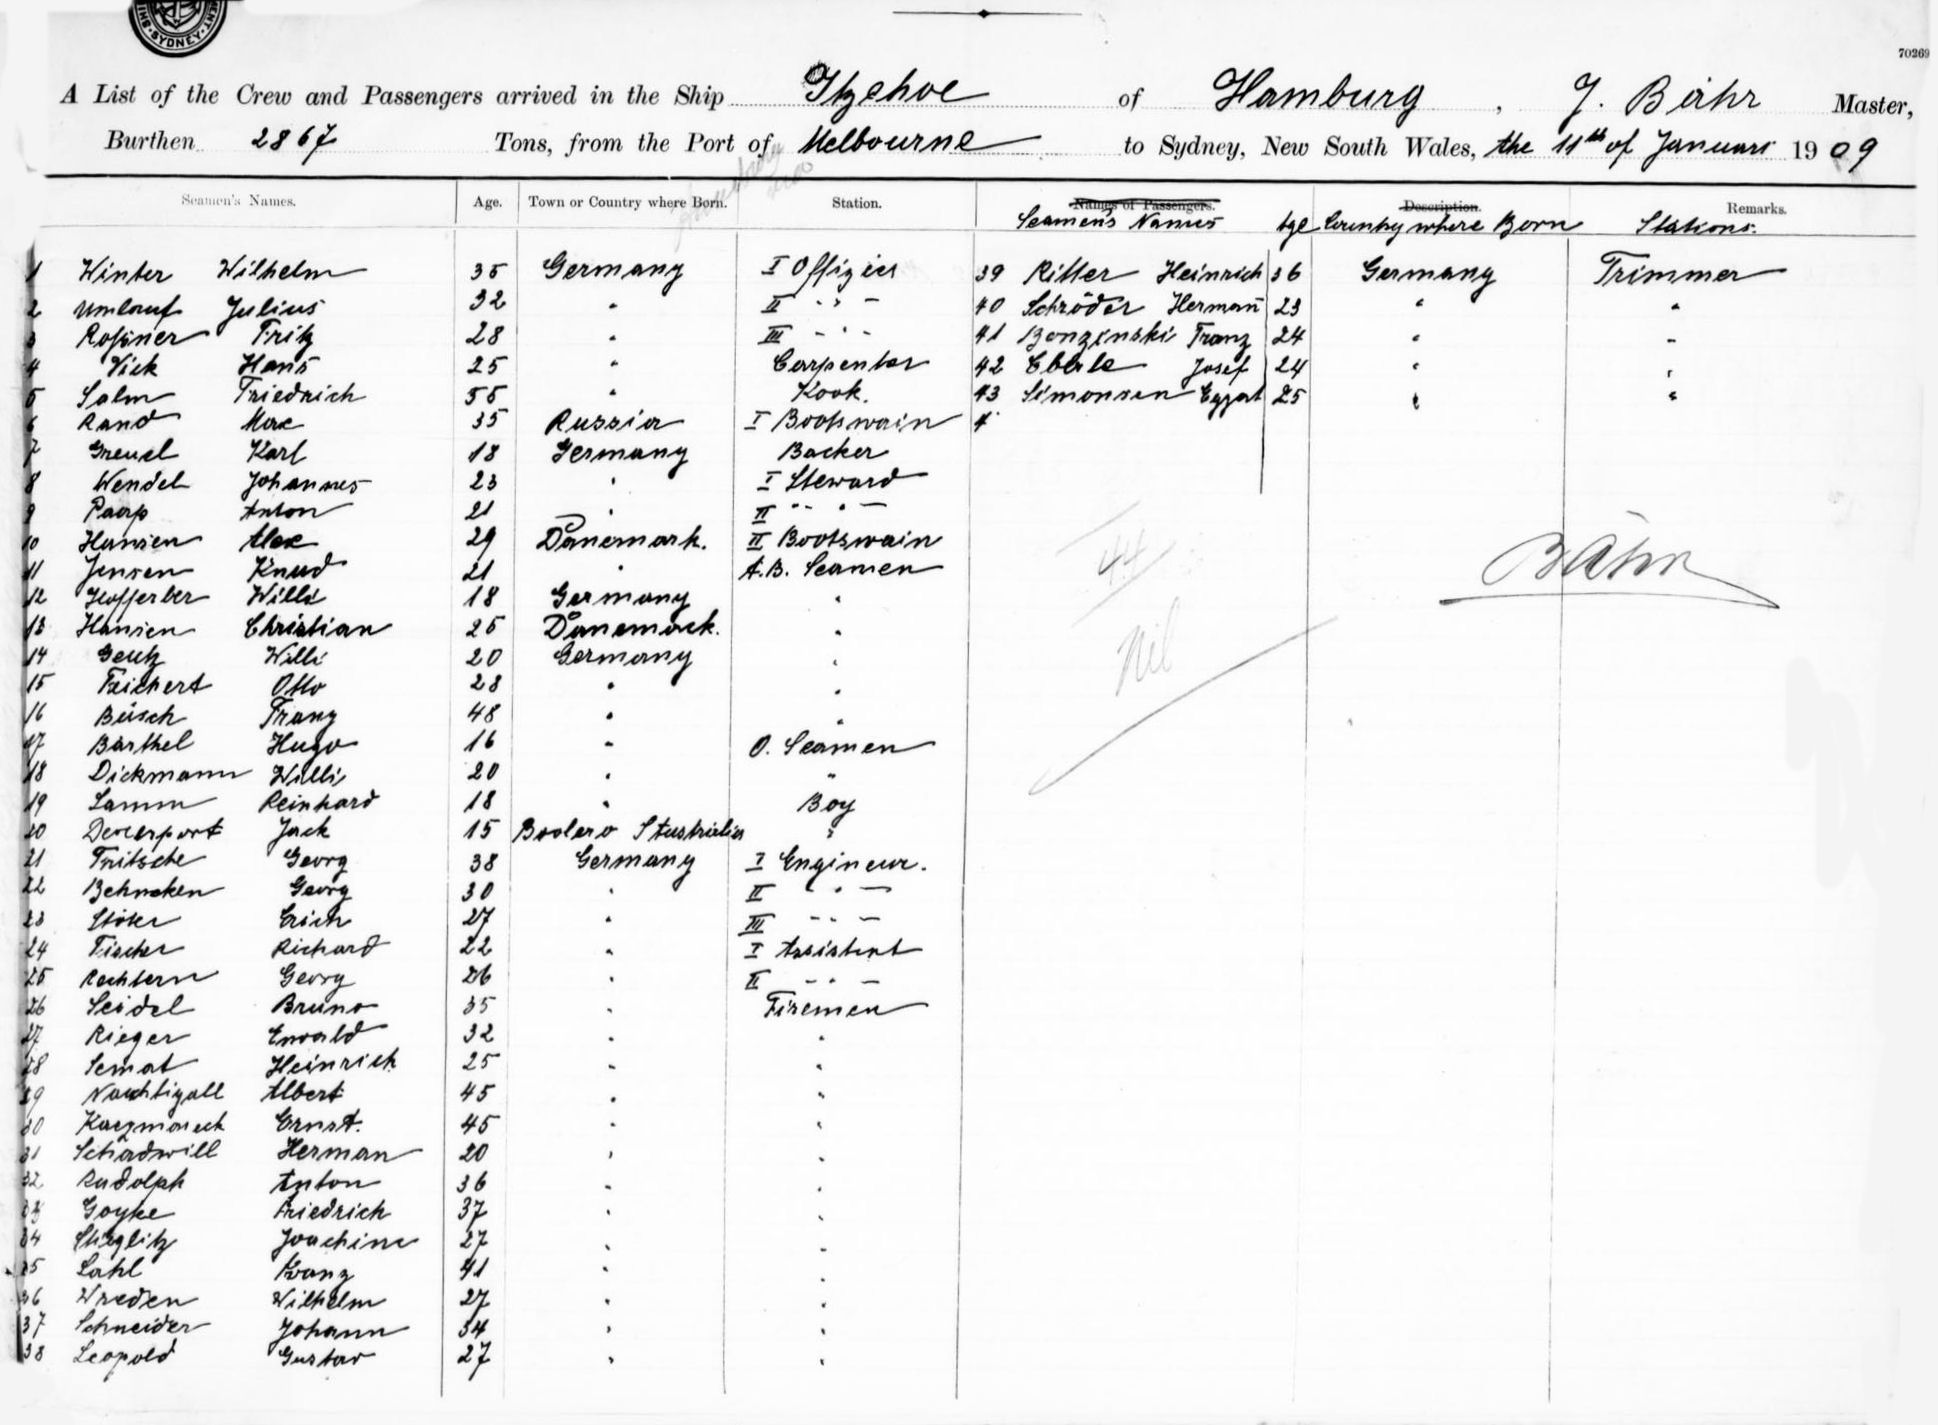 SYDNEY
70269
A List of the Crew and Passengers arrived in the Ship Itzehoe of Hamburg, J. Bähr Master,
Burthen 2867 Tons, from the Port of Melbourne to Sydney, New South Wales, the 11th of Januari 1909
Seamen's Names. Age. Town or Country where Born. Station. Names of Passengers. Description. Remarks.
Seamen's Names Age Country where Born Stations.
1 Winter Wilhelm 35 Germany I Offizier 39 Ritter Heinrich 36 Germany Trimmer
2 Umlauf Julius 32 " II " 40 Schröder Hermann 23 " "
3 Roßner Fritz 28 " III " 41 Bonzinski Franz 24 " "
4 Vick Hans 25 " Carpenter 42 Eberle Josef 24 " "
5 Salm Friedrich 55 " Kook. 43 Simonsen Eggert 25 " "
6 Rand Max 35 Russia I Bootswain 4
7 Greuel Karl 18 Germany Backer
8 Wendel Johannes 23 " I Steward
9 Paap Anton 21 " II "
10 Hansen Alex 29 Dänemark. II Bootswain
11 Jensen Knud 21 " A.B. Seamen
12 Hofferber Willi 18 Germany "
13 Hansen Christian 25 Dänemark. "
14 Geutz Willi 20 Germany "
15 Teichert Otto 28 " "
16 Büsch Franz 48 " "
17 Barthel Hugo 16 " O. Seamen
18 Dickmann Willi 20 " "
19 Lamm Reinhard 18 " Boy
20 Devenport Jack 15 Boolero S Australia "
21 Fritsche Georg 38 Germany I Engineur.
22 Behncken Georg 30 " II "
23 Stöker Erich 27 " III "
24 Fischer Richard 22 " I Assistent
25 Rechtern Georg 26 " II "
26 Seidel Bruno 35 " Firemen
27 Rieger Ewald 32 " "
28 Semat Heinrich 25 " "
29 Nachtigall Albert 45 " "
30 Kaczmareck Ernst. 45 " "
31 Schadwill Herman 20 " "
32 Rudolph Anton 36 " "
33 Goyke Friedrich 37 " "
34 Stieglitz Joachim 27 " "
35 Lahl Franz 41 " "
36 Wreden Wilhelm 27 " "
37 Schneider Johann 34 " "
38 Leopold Gustav 27 " "
44
Nil
Bähr